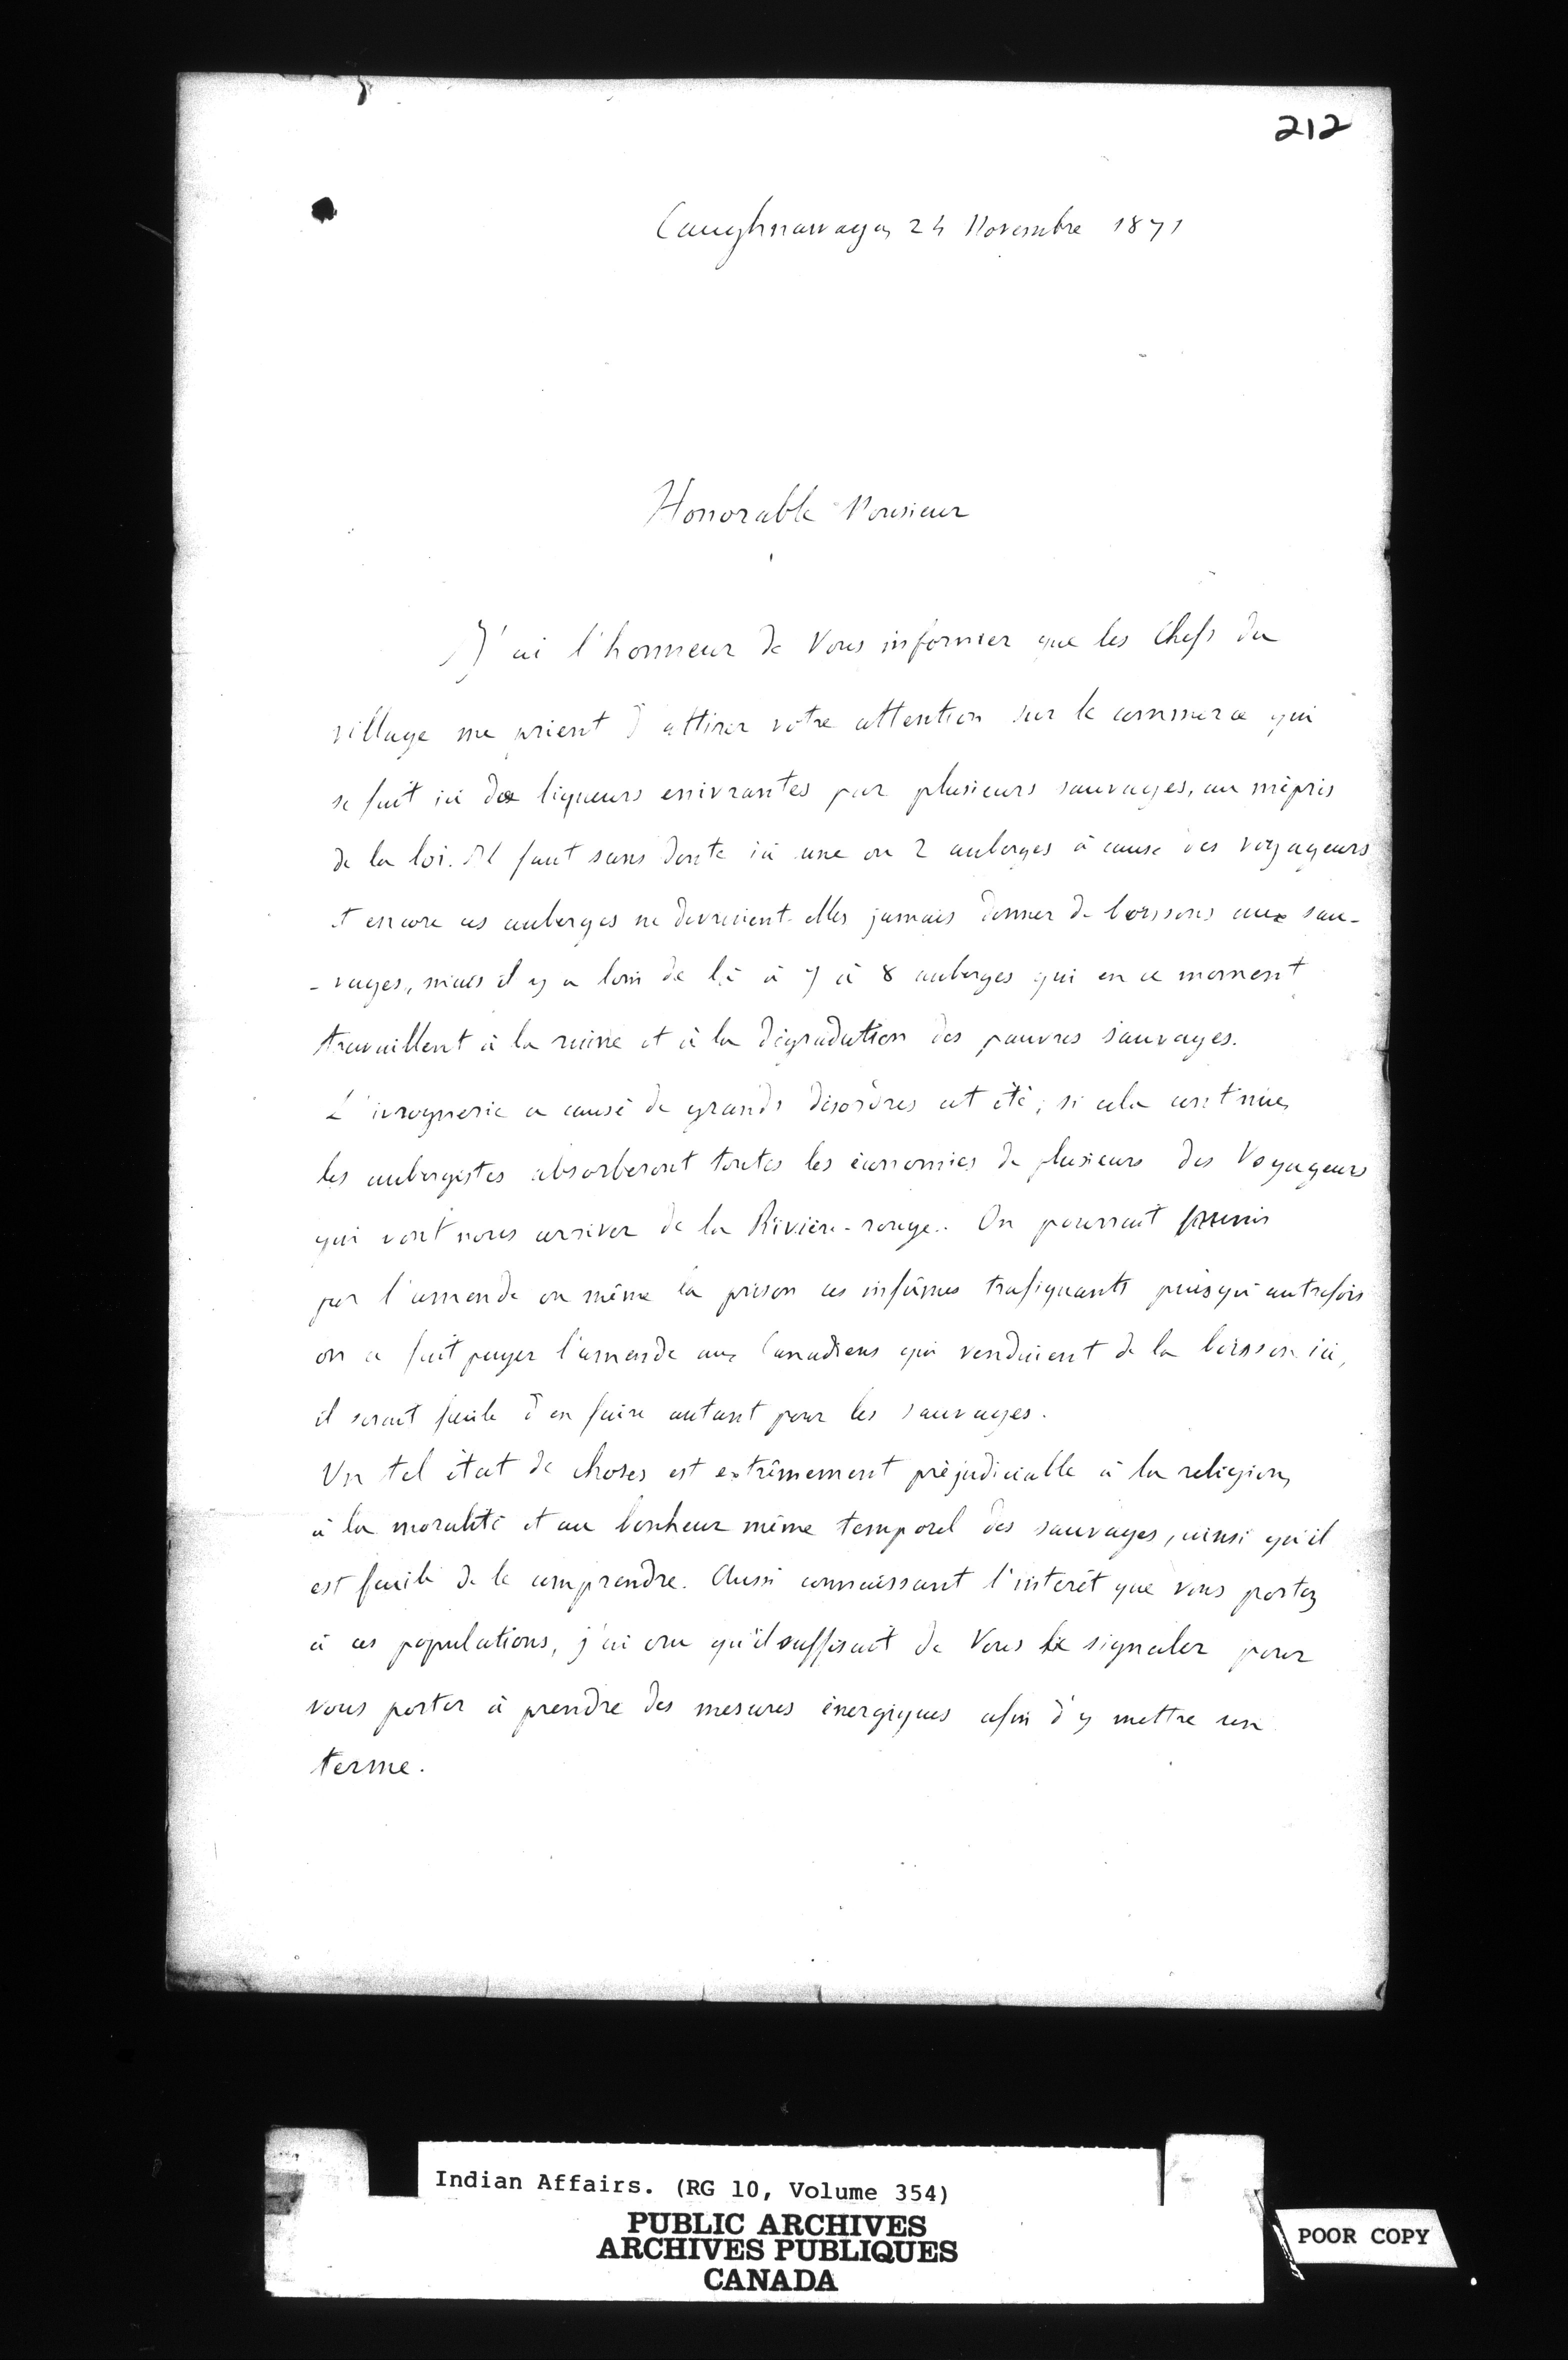 212
Caughnawaga, 24 Novembre 1871
Honorable Monsieur
J'ai l'honneur de Vous informer que les Chefs du
village me prient d'attirer votre attention sur le commerce qui
se fait ici de liqueurs enivrantes par plusieurs sauvages, au mépris
de la loi. Il faut sans doute ici une ou 2 auberges à cause des voyageurs
et encore ces auberges ne devraient-elles jamais donner de boissons aux sau-
-vages, mais il y a loin de là à 7 à 8 auberges qui en ce moment
travaillent à la ruine et à la dégradation des pauvres sauvages.
L'ivrognerie a causé de grands désordres cet été; si cela continue,
les aubergistes absorberont toutes les économies de plusieurs des Voyageurs
qui vont nous arriver de la Rivière-rouge. On pourrait punir
par l'amende ou même la prison ces infâmes trafiquants puisqu'autrefois
on a fait payer l'amende aux Canadiens qui vendaient de la boisson ici,
il serait facile d'en faire autant pour les sauvages.
Un tel état de choses est extrêmement préjudiciable à la religion,
à la moralité et au bonheur même temporel des sauvages, ainsi qu'il
est facile de le comprendre. Aussi connaissant l'intérêt que vous portez
à ces populations, j'ai cru qu'il suffisait de Vous le signaler pour
vous porter à prendre des mesures énergiques afin d'y mettre un
terme.
Indian Affairs. (RG 10, Volume 354)
PUBLIC ARCHIVES
ARCHIVES PUBLIQUES
CANADA
POOR COPY